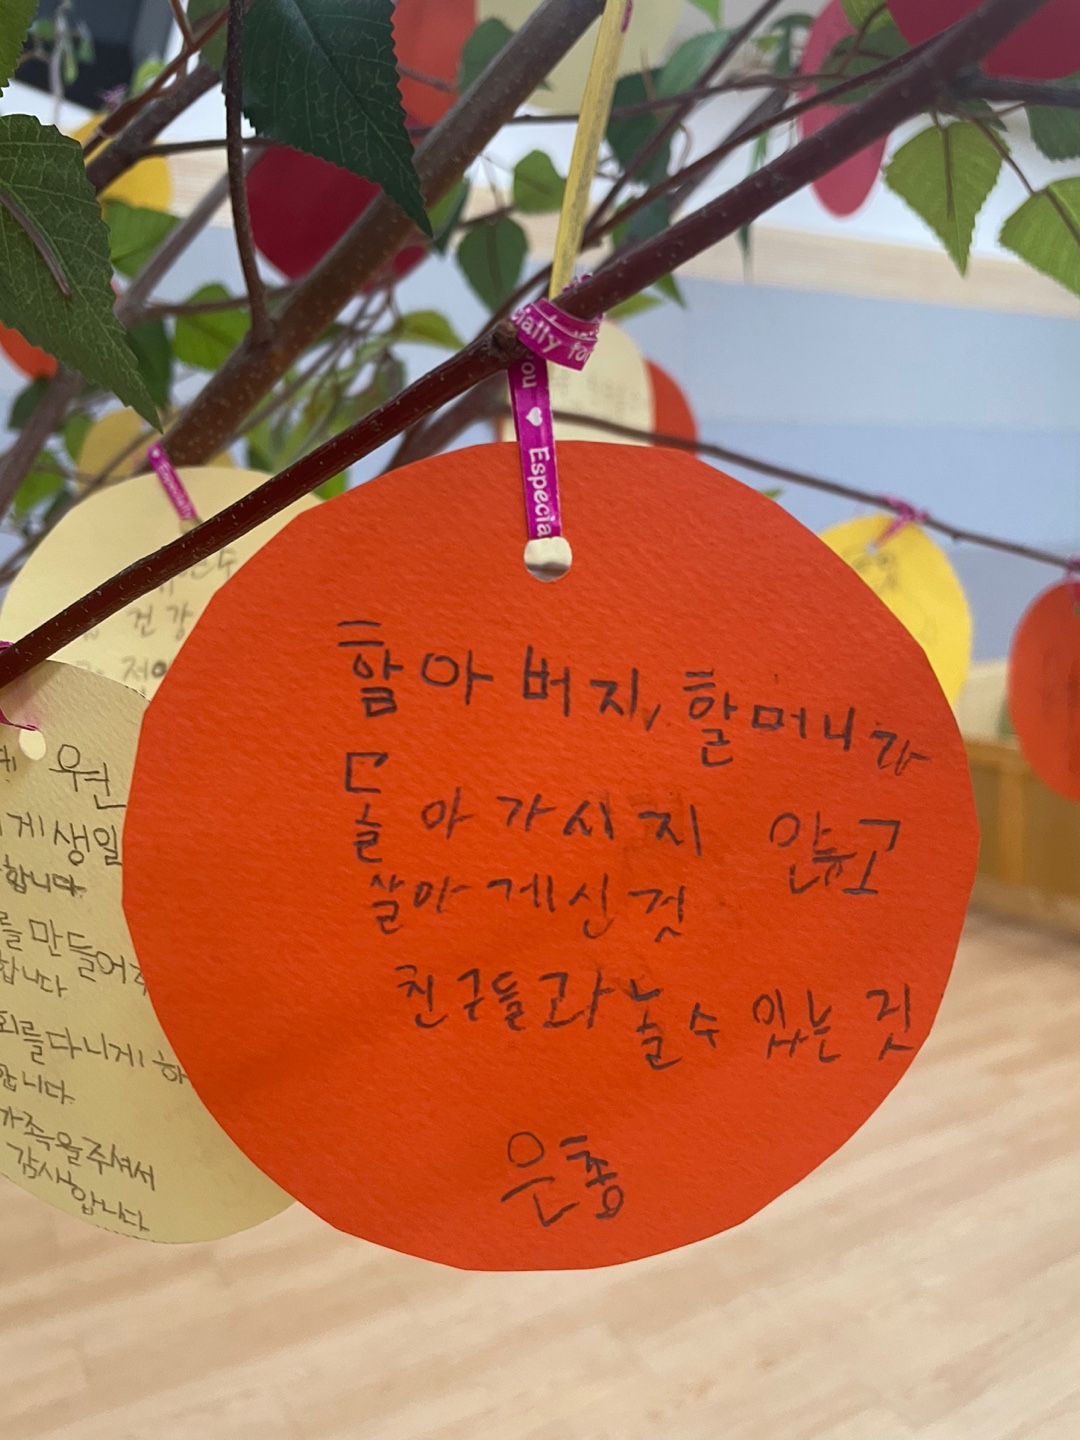 ially for
you ♥ Especia
할아버지, 할머니라
돌아가시지 않고
살아게신 것
친구들과 놀 수 있는 것
은총
건강
우연
게 생일
합니다.
를 만들어주
합니다
회를 다니게 하
합니다.
가족을 주셔서
감사합니다